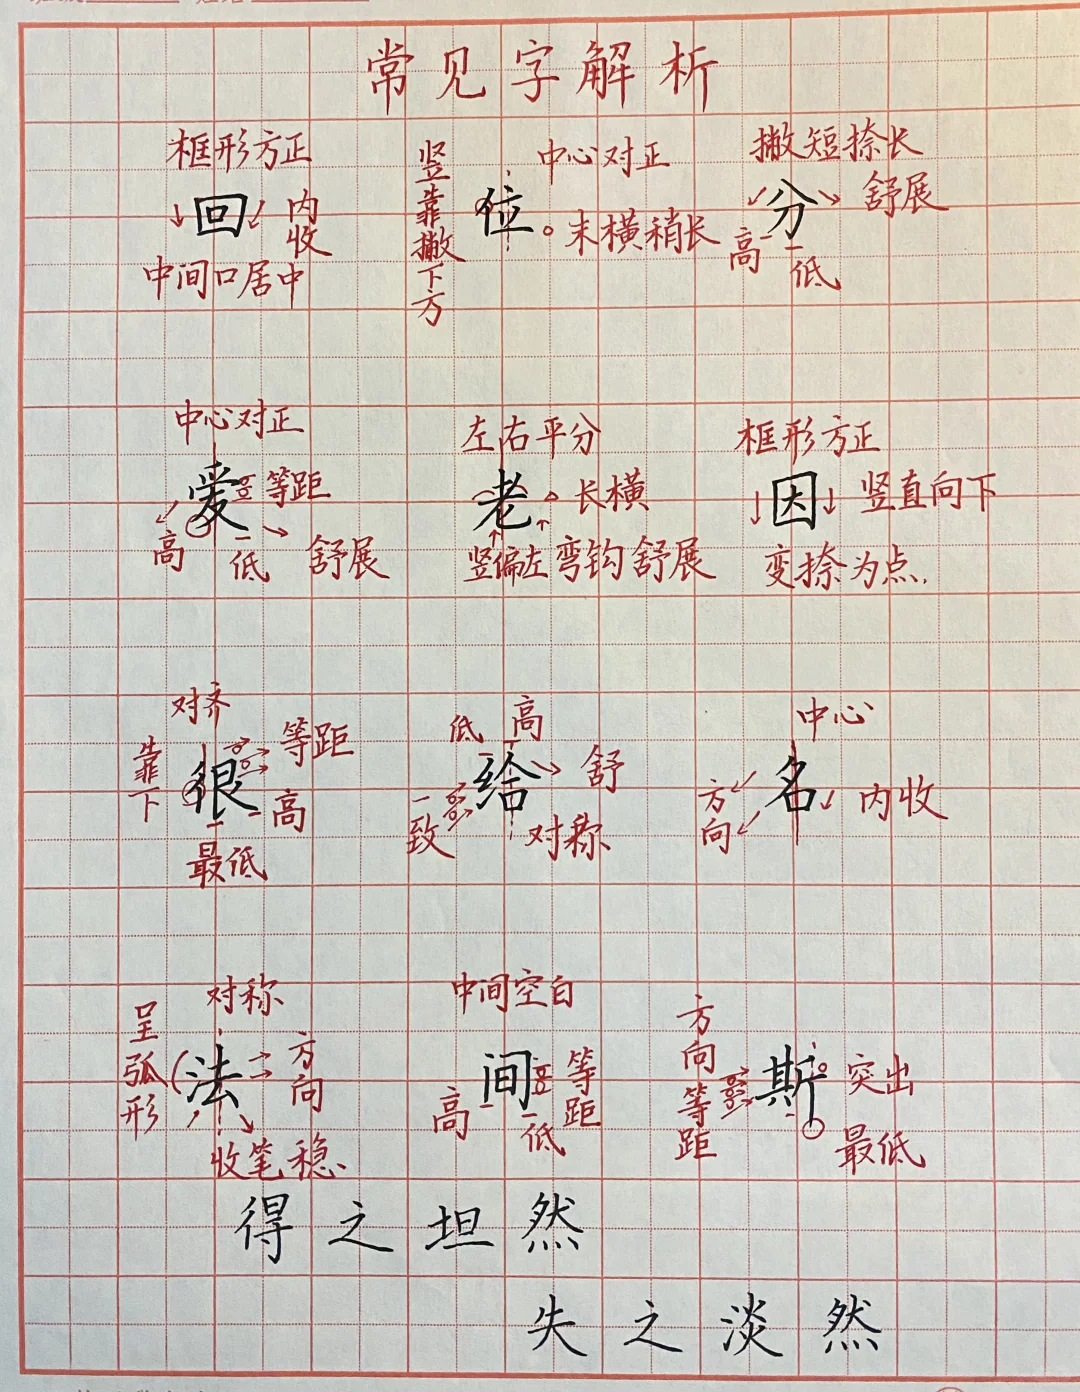 常见字解析
框形方正
回
内收
中间口居中
竖靠撇下方
中心对正
位
末横稍长
撇短捺长
分
舒展
高
低
中心对正
爱
等距
高
低
舒展
左右平分
老
长横
竖偏左
弯钩舒展
框形方正
因
竖直向下
变捺为点.
对齐
靠下
很
等距
高
最低
低
高
给
舒
一致
对称
中心
名
方向
内收
对称
呈弧形
法
方向
收笔稳.
中间空白
间
等距
高
低
方向等距
斯
突出
最低
得之坦然
失之淡然